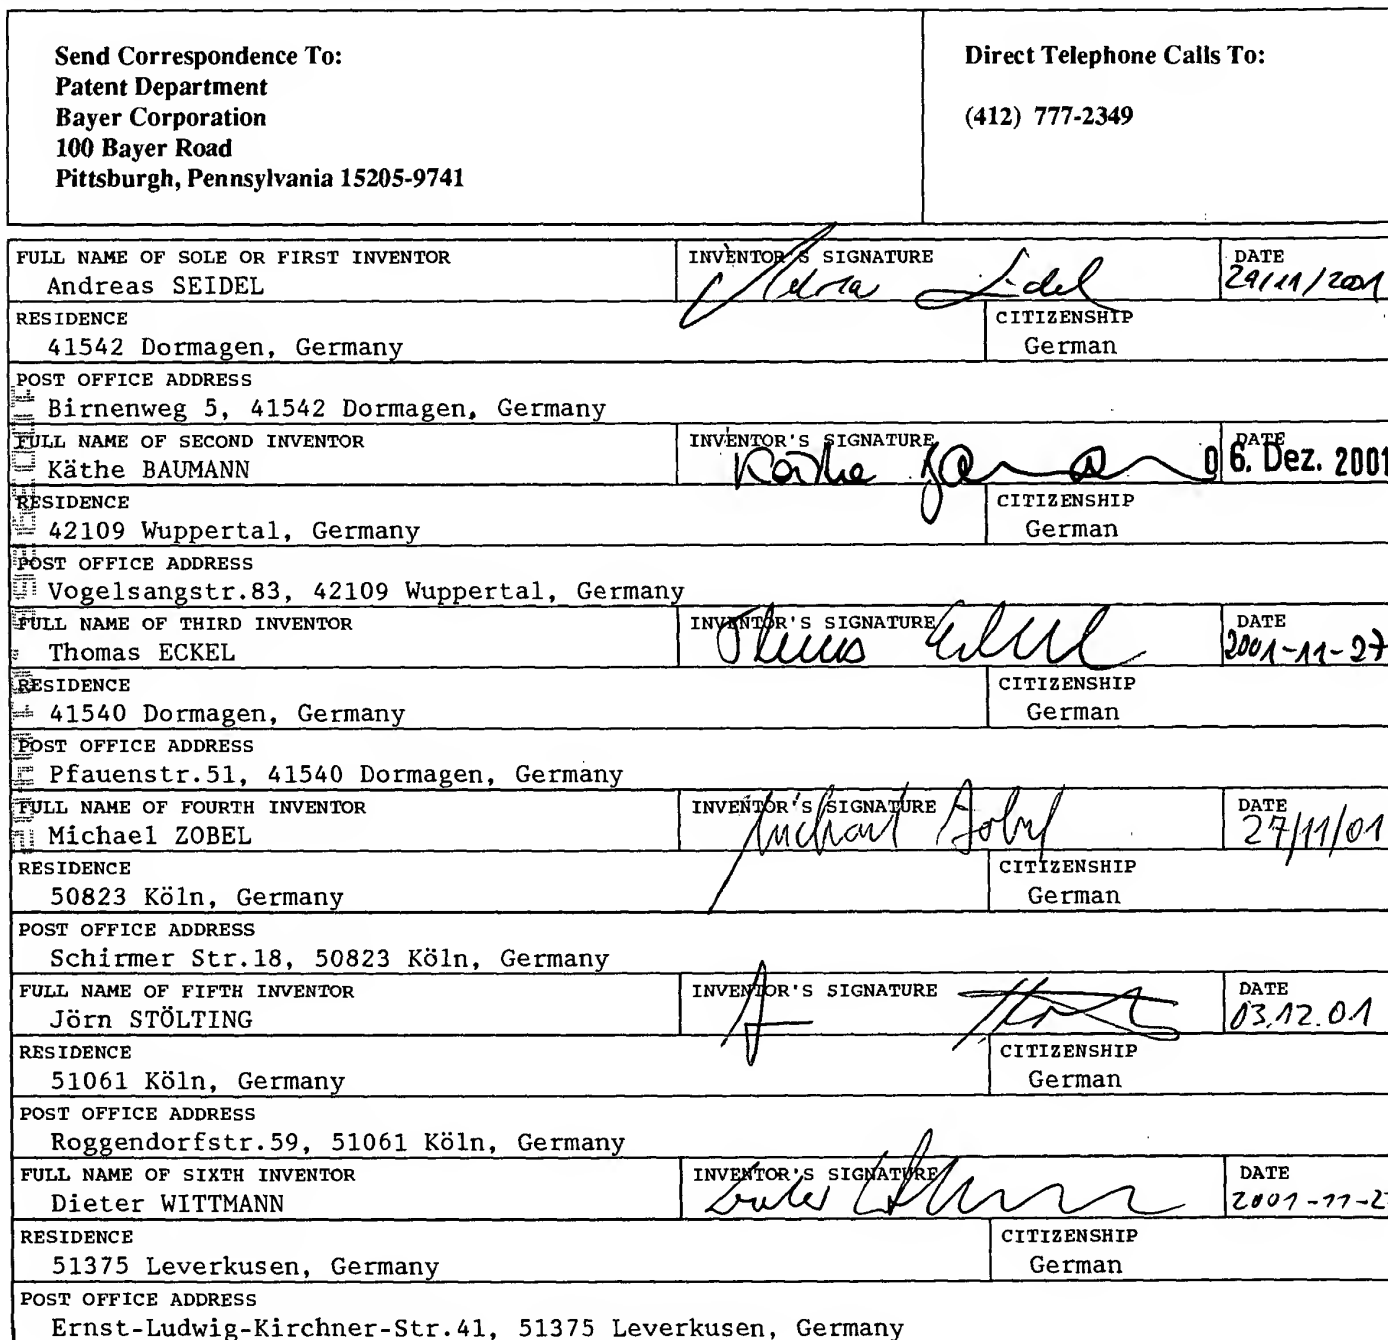 Send Correspondence To:
Patent Department
Bayer Corporation
100 Bayer Road
Pittsburgh, Pennsylvania 15205-9741
Direct Telephone Calls To:
(412) 777-2349
FULL NAME OF SOLE OR FIRST INVENTOR
Andreas SEIDEL
INVENTOR'S SIGNATURE
DATE
29/11/2001
RESIDENCE
41542 Dormagen, Germany
CITIZENSHIP
German
POST OFFICE ADDRESS
Birnenweg 5, 41542 Dormagen, Germany
FULL NAME OF SECOND INVENTOR
Käthe BAUMANN
INVENTOR'S SIGNATURE
Käthe
DATE
06. Dez. 2001
RESIDENCE
42109 Wuppertal, Germany
CITIZENSHIP
German
POST OFFICE ADDRESS
Vogelsangstr.83, 42109 Wuppertal, Germany
FULL NAME OF THIRD INVENTOR
Thomas ECKEL
INVENTOR'S SIGNATURE
DATE
2001-11-27
RESIDENCE
41540 Dormagen, Germany
CITIZENSHIP
German
POST OFFICE ADDRESS
Pfauenstr.51, 41540 Dormagen, Germany
FULL NAME OF FOURTH INVENTOR
Michael ZOBEL
INVENTOR'S SIGNATURE
Michael Zobel
DATE
27/11/01
RESIDENCE
50823 Köln, Germany
CITIZENSHIP
German
POST OFFICE ADDRESS
Schirmer Str.18, 50823 Köln, Germany
FULL NAME OF FIFTH INVENTOR
Jörn STÖLTING
INVENTOR'S SIGNATURE
DATE
03.12.01
RESIDENCE
51061 Köln, Germany
CITIZENSHIP
German
POST OFFICE ADDRESS
Roggendorfstr.59, 51061 Köln, Germany
FULL NAME OF SIXTH INVENTOR
Dieter WITTMANN
INVENTOR'S SIGNATURE
DATE
2001-11-2
RESIDENCE
51375 Leverkusen, Germany
CITIZENSHIP
German
POST OFFICE ADDRESS
Ernst-Ludwig-Kirchner-Str.41, 51375 Leverkusen, Germany